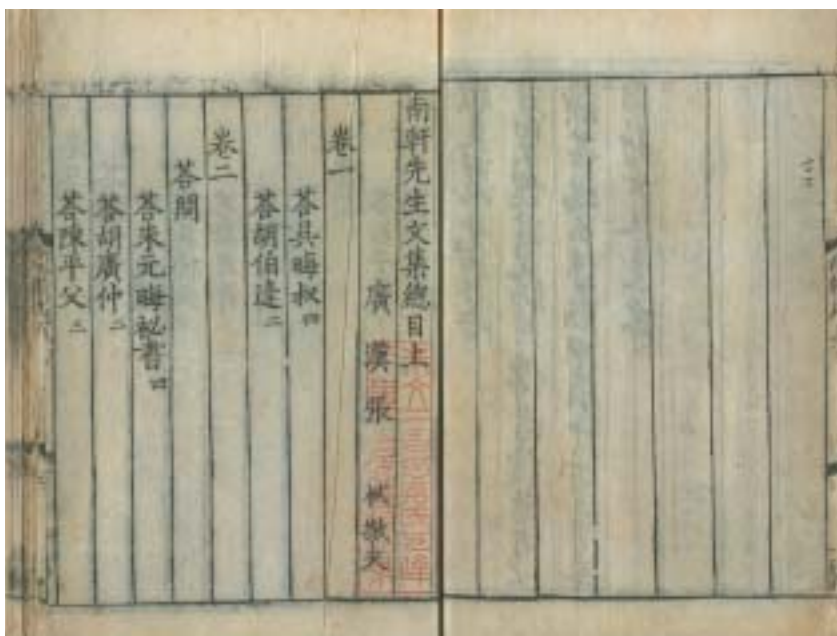 南軒先生文集總目上
廣漢張 栻敬夫
卷一
答吳晦叔四
答胡伯逢二
卷二
答問
答朱元晦祕書四
答胡廣仲二
答陳平父三